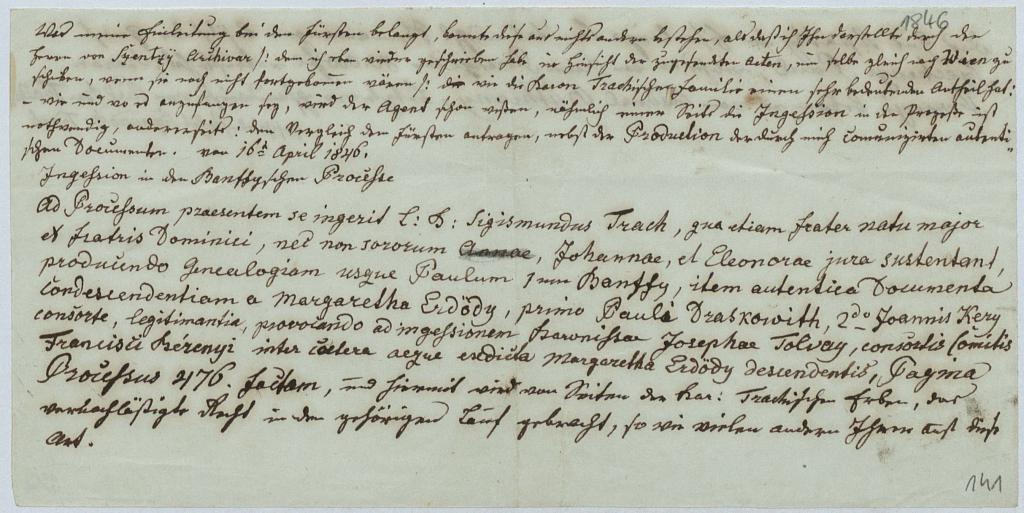 1846
Was meine Einleitung bei den Fürsten belangt, konnte diese aus nichts andern bestehen, als daß ich Ihn darstellte durch den
Herrn von Szentzy Archivar /: dem ich eben wieder geschrieben habe in Hinsicht der zugesendten Acten, um selbe gleich nach Wien zu
schicken, wenn sie noch nicht fortgekommen wären /: die wie die Baron Trachische Familie einen sehr bedeutenden Antheil hat:
– wie und wo es anzufangen sey, wird der Agent schon wissen, nähmlich einer Seits die Ingession in den Prozesse ist
nothwendig, andererseits: den Vergleich den Fürsten antragen, nebst der Production der durch mich comunizirten autenti-
schen Documenten. von 16t April 1846.
Ingession in den Banffyschen Processe
Ad Processum praesentem se ingerit L: B: Sigismundus Trach, qua etiam frater natu major
et fratris Dominici, nec non sororum Annae, Johannae, et Eleonorae jura sustentans,
producendo Genealogiam usque Paulum 1um Banffy, item autentica Documenta
Condescendentiam a Margaretha Erdödy, primo Pauli Draskowith, 2do Joannis Kery
consorte, legitimantia, provocando ad ingessionem Baronissae Josephae Tolvay, consortis Comitis
Francisci Bérenyi inter coetera aeque exdicta Margaretha Erdödy descendentis, Pagina
Processus 476. factam, und hiermit wird von Seiten der Bar: Trachischen Erben, das
vernachläßigte Recht in den gehörigen Lauf gebracht, so wie vielen andern Ihrer auf diese
Art.
141